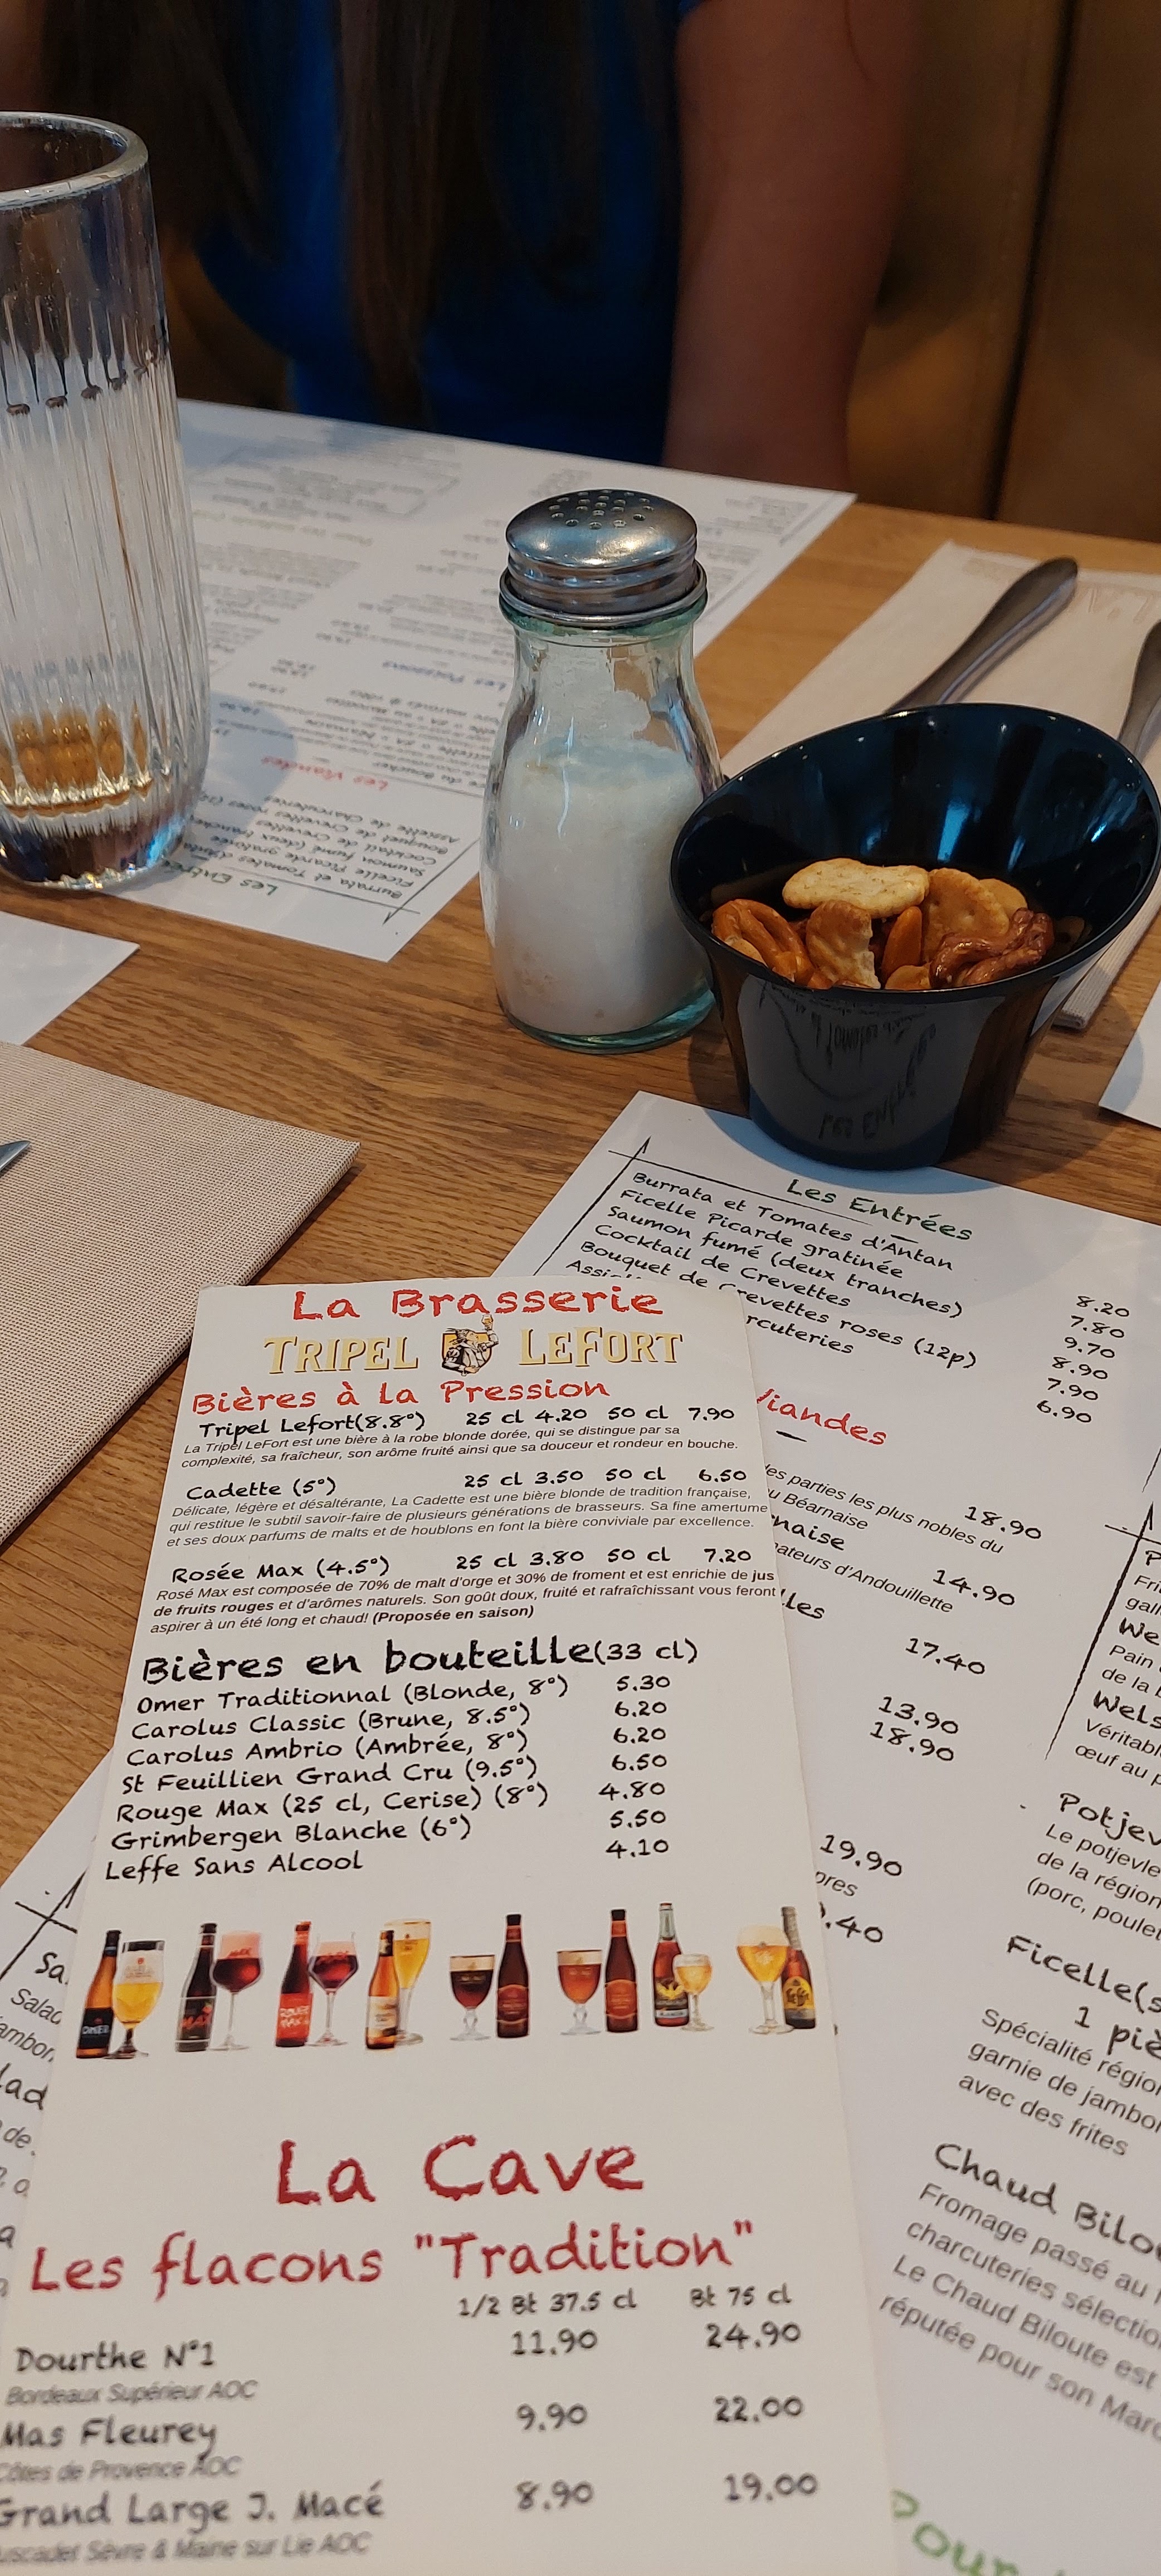 La Brasserie
TRIPEL LEFORT
Bières à la Pression
Tripel Lefort(8.8°) 25 cl 4.20 50 cl 7.90
La Tripel LeFort est une bière à la robe blonde dorée, qui se distingue par sa
complexité, sa fraîcheur, son arôme fruité ainsi que sa douceur et rondeur en bouche.
Cadette (5°) 25 cl 3.50 50 cl 6.50
Délicate, légère et désaltérante, La Cadette est une bière blonde de tradition française,
qui restitue le subtil savoir-faire de plusieurs générations de brasseurs. Sa fine amertume
et ses doux parfums de malts et de houblons en font la bière conviviale par excellence.
Rosée Max (4.5°) 25 cl 3.80 50 cl 7.20
Rosé Max est composée de 70% de malt d'orge et 30% de froment et est enrichie de jus
de fruits rouges et d'arômes naturels. Son goût doux, fruité et rafraîchissant vous feront
aspirer à un été long et chaud! (Proposée en saison)
Bières en bouteille(33 cl)
Omer Traditionnal (Blonde, 8°) 5.30
Carolus Classic (Brune, 8.5°) 6.20
Carolus Ambrio (Ambrée, 8°) 6.20
St Feuillien Grand Cru (9.5°) 6.50
Rouge Max (25 cl, Cerise) (8°) 4.80
Grimbergen Blanche (6°) 5.50
Leffe Sans Alcool 4.10
La Cave
Les flacons "Tradition"
1/2 Bt 37.5 cl Bt 75 cl
Dourthe N°1 11.90 24.90
Bordeaux Supérieur AOC
Mas Fleurey 9.90 22.00
Côtes de Provence AOC
Grand Large J. Macé 8.90 19.00
uscadet Sèvre & Maine sur Lie AOC
Les Entrées
Burrata et Tomates d'Antan 8.20
Ficelle Picarde gratinée 7.80
Saumon fumé (deux tranches) 9.70
Cocktail de Crevettes 8.90
Bouquet de Crevettes roses (12p) 7.90
Assi rcuteries 6.90
Viandes
des parties les plus nobles du 18.90
u Béarnaise
rnaise 14.90
mateurs d'Andouillette
lles 17.40
13.90
18.90
19.90
pres
.40
Fri
gall
We
Pain
de la b
Wels
Véritabl
œuf au p
Potjev
Le potjevle
de la région
(porc, poulet
Ficelle(s
1 piè
Spécialité régio
garnie de jambo
avec des frites
Chaud Bilo
Fromage passé au
charcuteries sélectio
Le Chaud Biloute est
réputée pour son Maro
Pour
Sa
Salad
jambon
lad
de
Les Viandes
Les Poissons
Les Entrées
Burrata et Tomates d'Anta
Ficelle Picarde gratinée
Saumon fumé (deux tranches
Cocktail de Crevettes
Bouquet de Crevettes roses (12
Assiette de Charcuteries